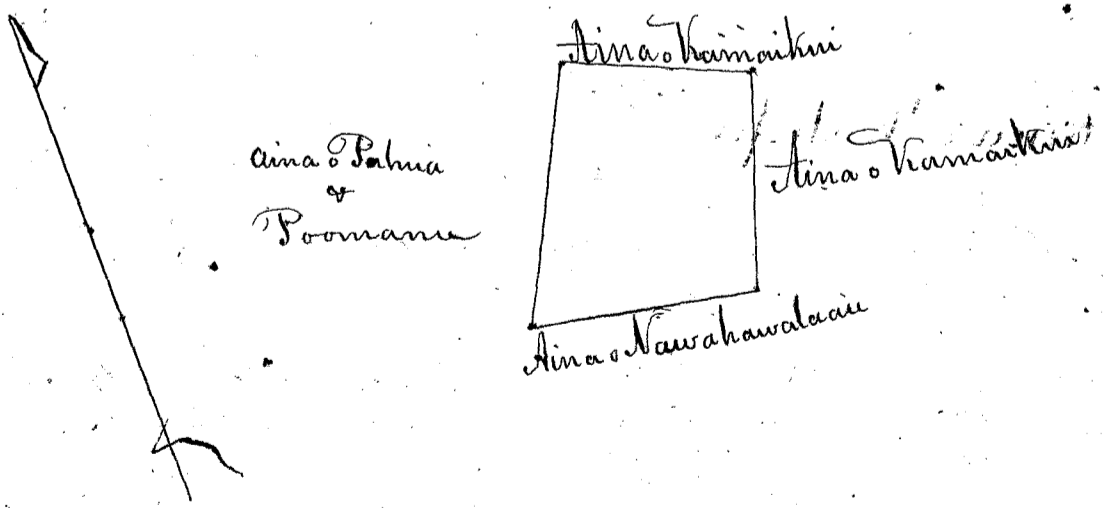 Aina o Kamaikui
aina o Pahuia
&
Poomanu
Aina o Kamaikui
Aina o Nawahawalaau